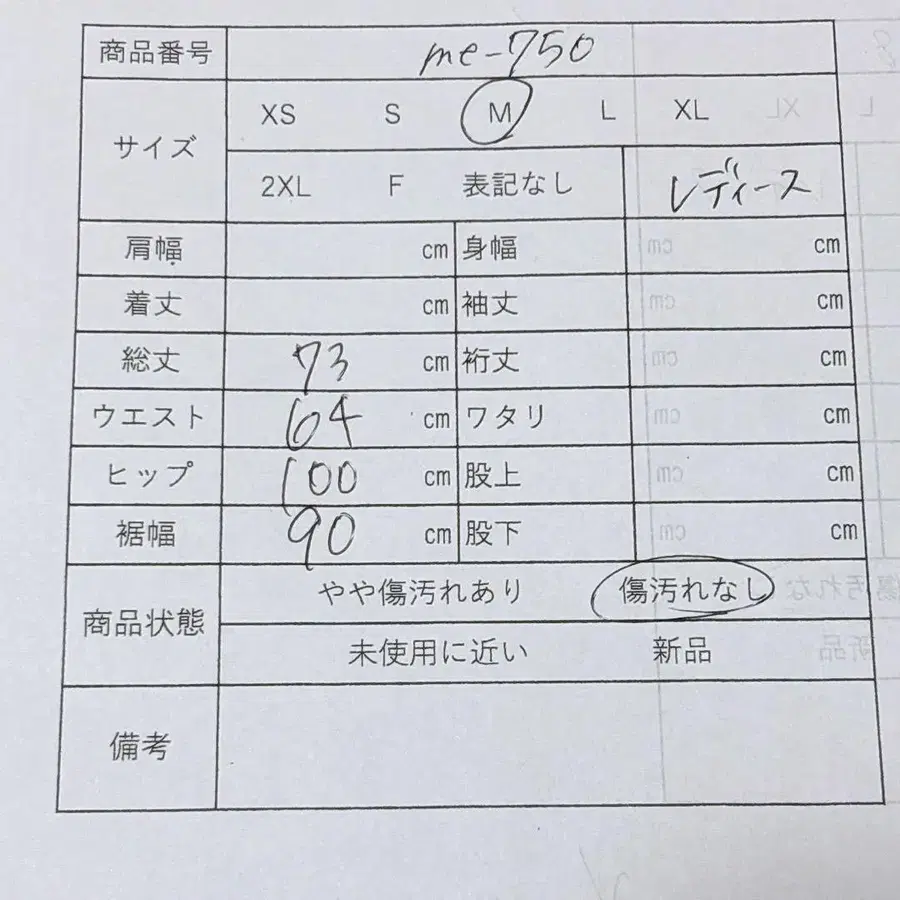 商品番号 me-750
サイズ XS S M L XL
2XL F 表記なし レディース
肩幅 cm 身幅 cm
着丈 cm 袖丈 cm
総丈 73 cm 裄丈 cm
ウエスト 64 cm ワタリ cm
ヒップ 100 cm 股上 cm
裾幅 90 cm 股下 cm
商品状態 やや傷汚れあり 傷汚れなし
未使用に近い 新品
備考